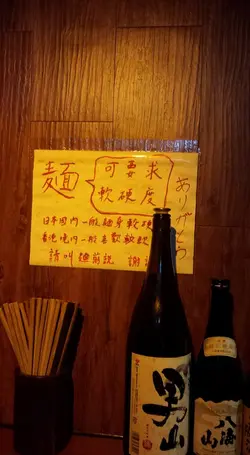 麵
可要求
軟硬度
ありがとう
日本国内一般麵身軟硬
香港境内一般喜歡軟
請叫麵前説 謝
男山
八海山